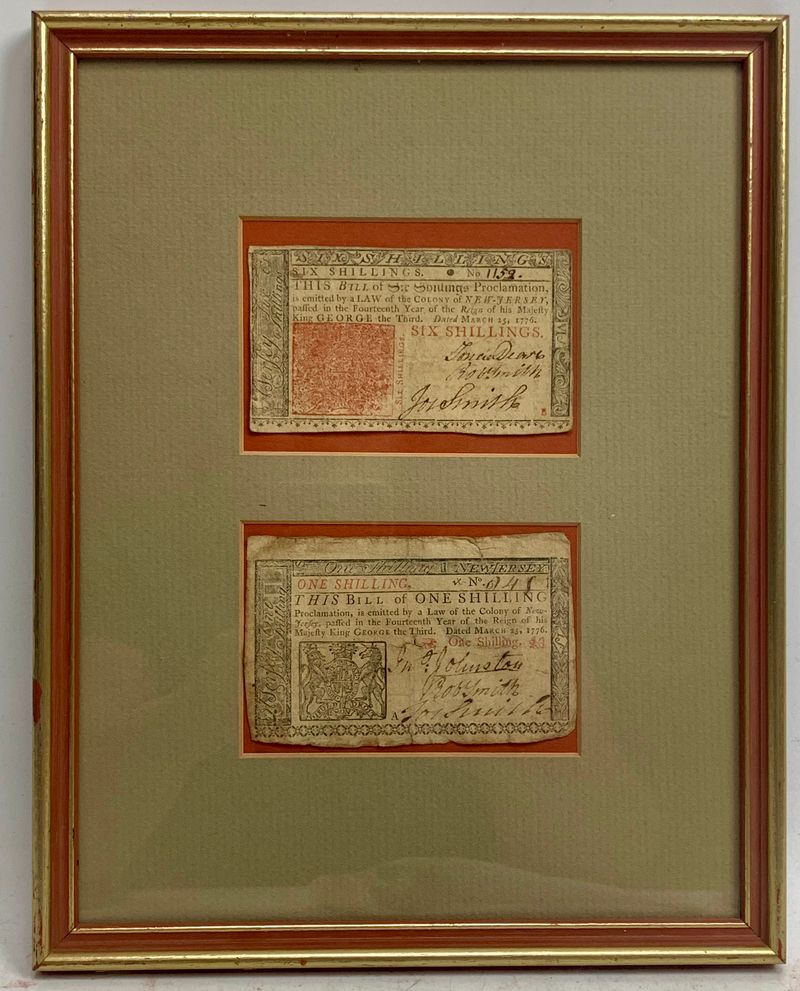 SIX SHILLINGS
SIX SHILLINGS. No 1152.
THIS Bill of Six Shillings Proclamation,
is emitted by a LAW of the COLONY of NEW-JERSEY,
passed in the Fourteenth Year of the Reign of his Majesty
King GEORGE the Third. Dated MARCH 25, 1776.
SIX SHILLINGS.
SIX SHILLINGS.
Rob Smith
Jos Smith
B
One Shilling NEW JERSEY
ONE SHILLING. No.
THIS BILL of ONE SHILLING
Proclamation, is emitted by a Law of the Colony of New-
Jersey, passed in the Fourteenth Year of the Reign of his
Majesty King GEORGE the Third. Dated MARCH 25, 1776.
One Shilling.
Jno. Johnston
Rob Smith
A Jos Smith